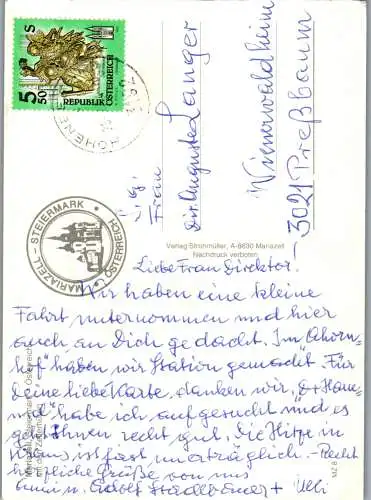 S
5 50
REPUBLIK ÖSTERREICH
HOHENE
MARIAZELL - STEIERMARK
ÖSTERREICH
Frau
Dir. Auguste Langer
Wienerwaldheim
3021 Preßbaum
Verlag Strohmüller, A-8630 Mariazell
Nachdruck verboten
MZ 8
Liebe Frau Direktor!
Wir haben eine kleine
Fahrt unternommen und hier
auch an Dich gedacht. Im "Ahorn-
hof" haben wir Station gemacht. Für
Deine liebe Karte, danken wir,
habe ich aufgesucht und es
geht Ihnen recht gut. Die Hitze in
ist fast unerträglich. - Recht
herzliche Grüße von uns
Adolf + Uli